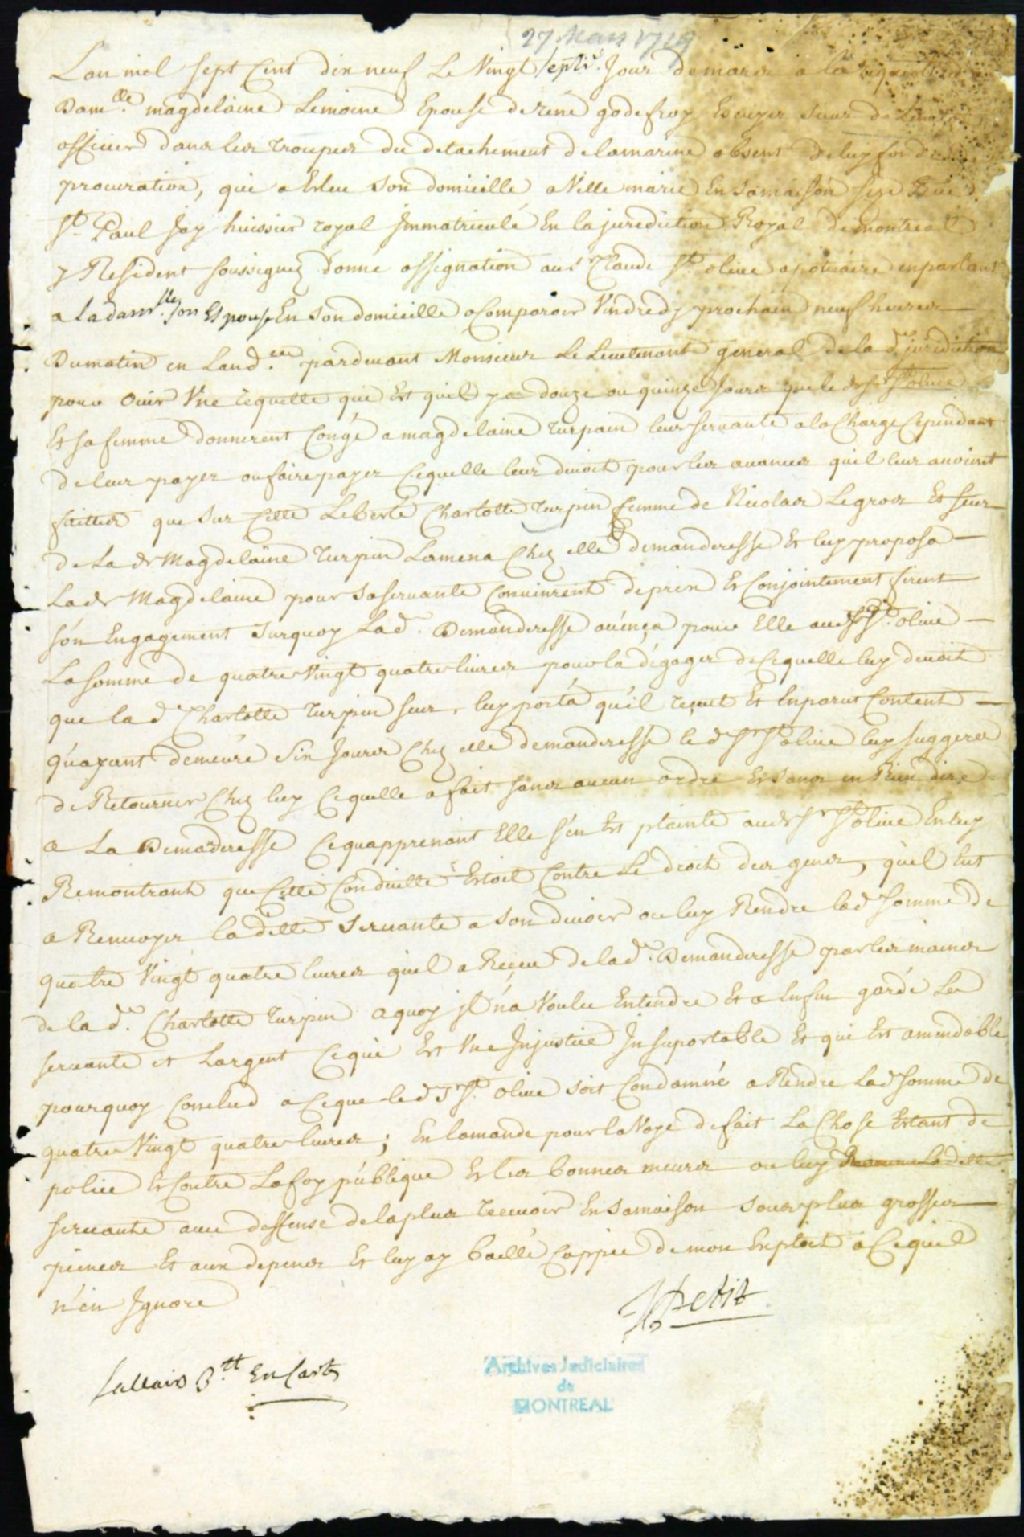 27 Mars 1719
L'an mil sept Cent dix neuf Le Vingt septe. Jour de mars a la requeste de
Dam.lle magdelaine Lemoine Epouse de rené godefroy Escuyer sieur de
officier dans les troupes du detachement de la marine absent de luy fondée de
procuration, qui a Esleu son domicille a Ville marie En sa maison size Rüe
St. Paul Jay huissier royal Jmmatriculé En la jurediction Royal de montreal
y Resident soussigné donné assignation au sr Claude St. olive apoticaire en parlant
a la dam.lle son Espouse En son domicille a Comparoir Vendredy prochain neuf heures
du matin en Laud.ce pardevant Monsieur Le Lieutenant general de la d. jurediction
pour ouir Une requette qui Est quil y a douze ou quinze Jours que le d. sr St. olive
Et sa femme donnerent Congé a magdelaine turpain leur servante a la Charge Cependant
de leur payer ou faire payer Ce quelle leur devoit pour les avances quil leur avoient
faittes que sur Cette Liberté Charlotte Turpin femme de Nicolas Legros Et seur
de La de Magdelaine turpin Lamena Chez elle demanderesse Et luy proposa
La de Magdelaine pour sa servante Convinrent de prix Et Conjointement firent
son Engagement surquoy Lad. Demanderesse avença pour Elle au d. sr St. olive
La somme de quatre Vingt quatre livres pour la dégager de Ce quelle luy devoit
que la d. Charlotte turpin seur luy porta qu'il reçeut Et En parut Content
quayant demeuré six Jours Chez elle demanderesse le d. sr St. olive luy suggera
de Retourner Chez luy Ce quelle a fait sans aucun ordre Et sans en Rien dire
a La Demanderesse Ce quapprenant Elle s'en Est plainte au d. sr St. olive En luy
Remontrant que Cette Conduitte Estoit Contre Le droit des gens, quil Eut
a Renvoyer la ditte servante a son devoir ou luy Rendre lad. somme de
quatre Vingt quatre livres quil a Reçeu de la d. Demanderesse par les mains
de la d. Charlotte turpin a quoy jl n'a Voulu Entendre Et a Enfin gardé La
servante et Largent Ce qui Est Une Jnjustice Jnsuportable Et qui Est amendable
pourquoy Conclud a Ce que led. sr St. olive soit Condamné a Rendre Lad. somme de
quatre Vingt quatre livres; En lamande pour la Voye de fait La Chose Estant de
police Et Contre La foy publique Et les bonnes meurs ou luy
servante avec deffense de la plus recevoir En sa maison sous plus grosses
peines Et aux depens Et luy ay baillé Coppie de mon Exploit a Ce quil
n'en Jgnore
Petit
Archives Judiciaires
de
MONTREAL